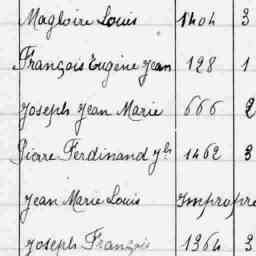 Magloire Louis 1404 3
François Eugène Jean 128 1
Joseph Jean Marie 666 2
Pierre Ferdinand 1462 3
Jean Marie Louis Impropre
Joseph François 1364 3